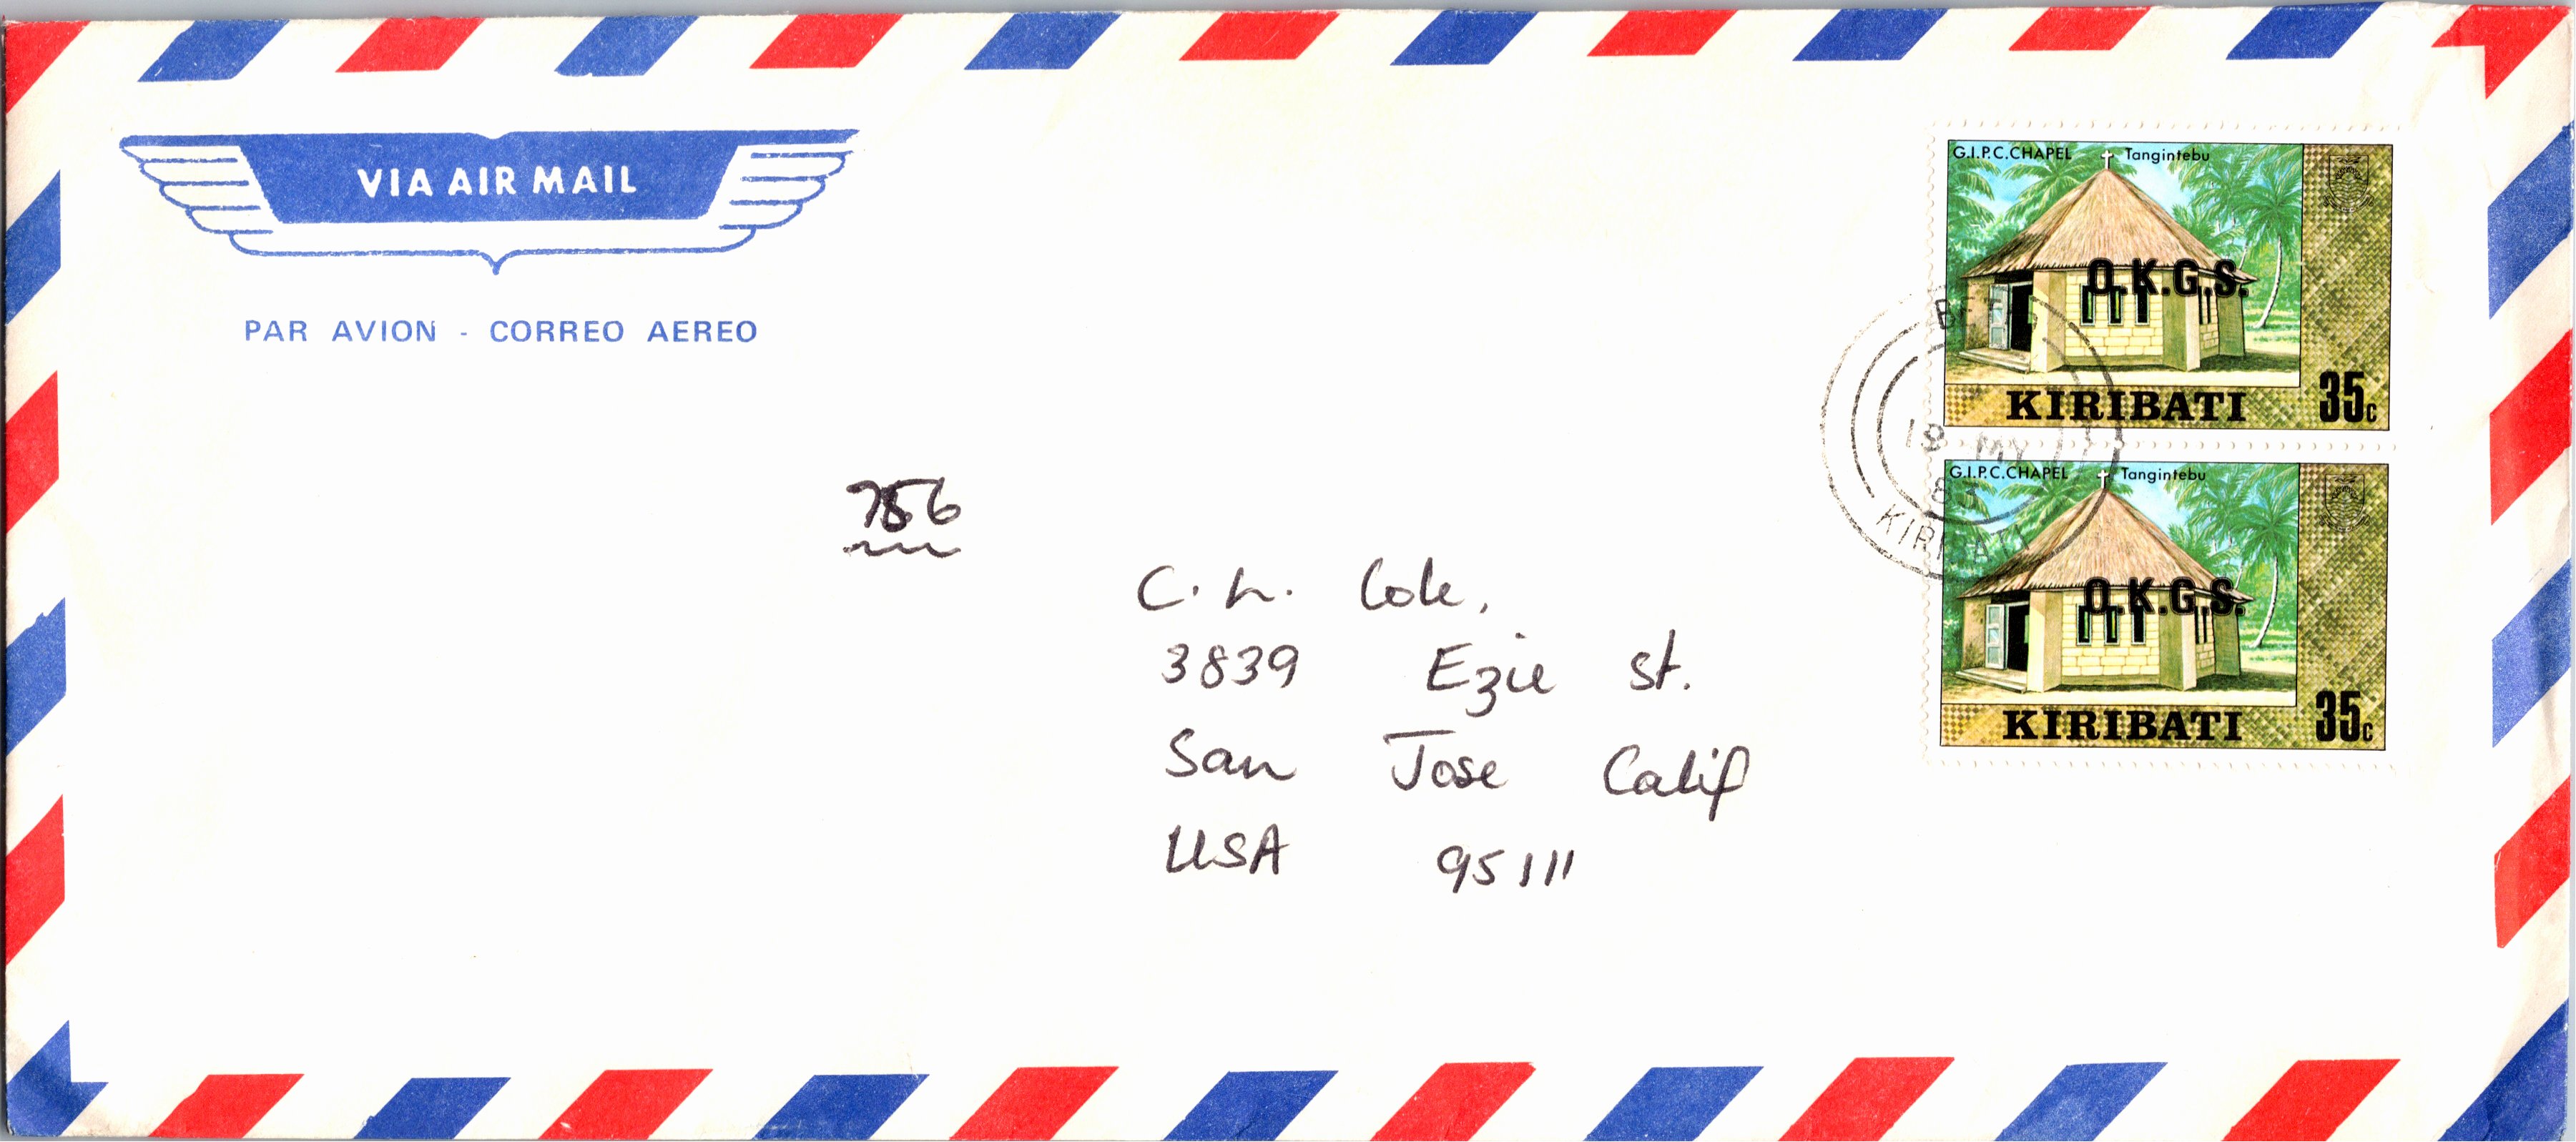 VIA AIR MAIL
PAR AVION - CORREO AEREO
G.I.P.C. CHAPEL Tangintebu
O.K.G.S.
KIRIBATI 35c
G.I.P.C. CHAPEL Tangintebu
O.K.G.S.
KIRIBATI 35c
MY
KIRIBATI
756
C. L. Cole,
3839 Ezie St.
San Jose Calif
USA 95111